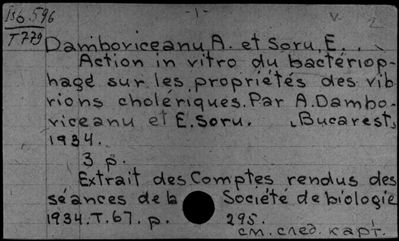 Iso.596
T779
- 1 -
v. 2
Damboviceanu, A. et Soru, E. . .
Action in vitro du bactériop-
hage sur les propriétés des vib-
rions cholériques. Par A. Dambo-
viceanu et E. Soru. Bucarest,
1934.
3 p.
Extrait des Comptes rendus des
séances de la Société de biologie
1934. T. 67. p. 295.
см. след. карт.